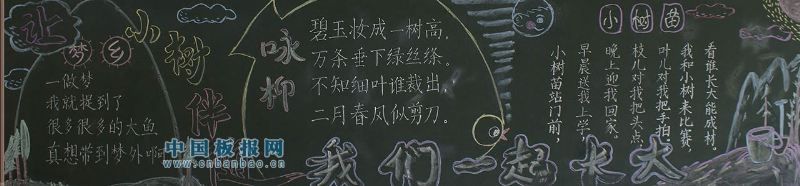 让
小树
伴
我们一起长大
梦乡
一做梦
我就捉到了
很多很多的大鱼
真想带到梦外啊
咏柳
碧玉妆成一树高，
万条垂下绿丝绦。
不知细叶谁裁出，
二月春风似剪刀。
小树苗
小树苗站门前，
早晨送我上学，
晚上迎我回家。
枝儿对我把头点，
叶儿对我把手拍，
我和小树来比赛，
看谁长大能成材。
中国板报网
www.cnbanbao.cn